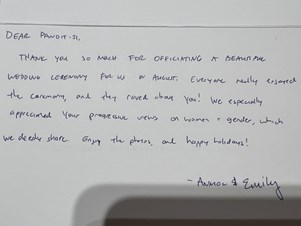 DEAR PANDIT-JI,
THANK YOU SO MUCH FOR OFFICIATING A BEAUTIFUL
WEDDING CEREMONY FOR US IN AUGUST. EVERYONE really enjoyed
the ceremony, and they raved about you! We especially
appreciated your progressive views on women + gender, which
we deeply share. Enjoy the photos, and happy holidays!
- ANMOL & Emily